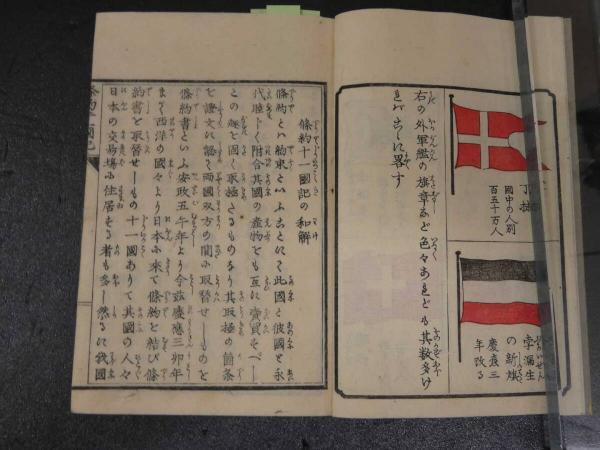 丁抹
國中の人別
百五十万人
孛漏生
の新旗
慶應三
年改る
右の外軍艦の旗章など色々あれども其数多け
れバこゝに畧す
條約十一國記の和解
條約とハ約束といふことにて此國と彼國と永
代睦しく附合其國の産物をも互に賣買すべし
との趣を固く取極たるものなり其取極の箇条
を證文に認て両國双方の間に取替せしものを
條約書といふ安政五午年より今茲慶應三卯年
まで西洋の國々より日本に来て條約を結び條
約書を取替せしもの十一國ありて其國の人々
日本の交易場に住居する者も多し然るに我國